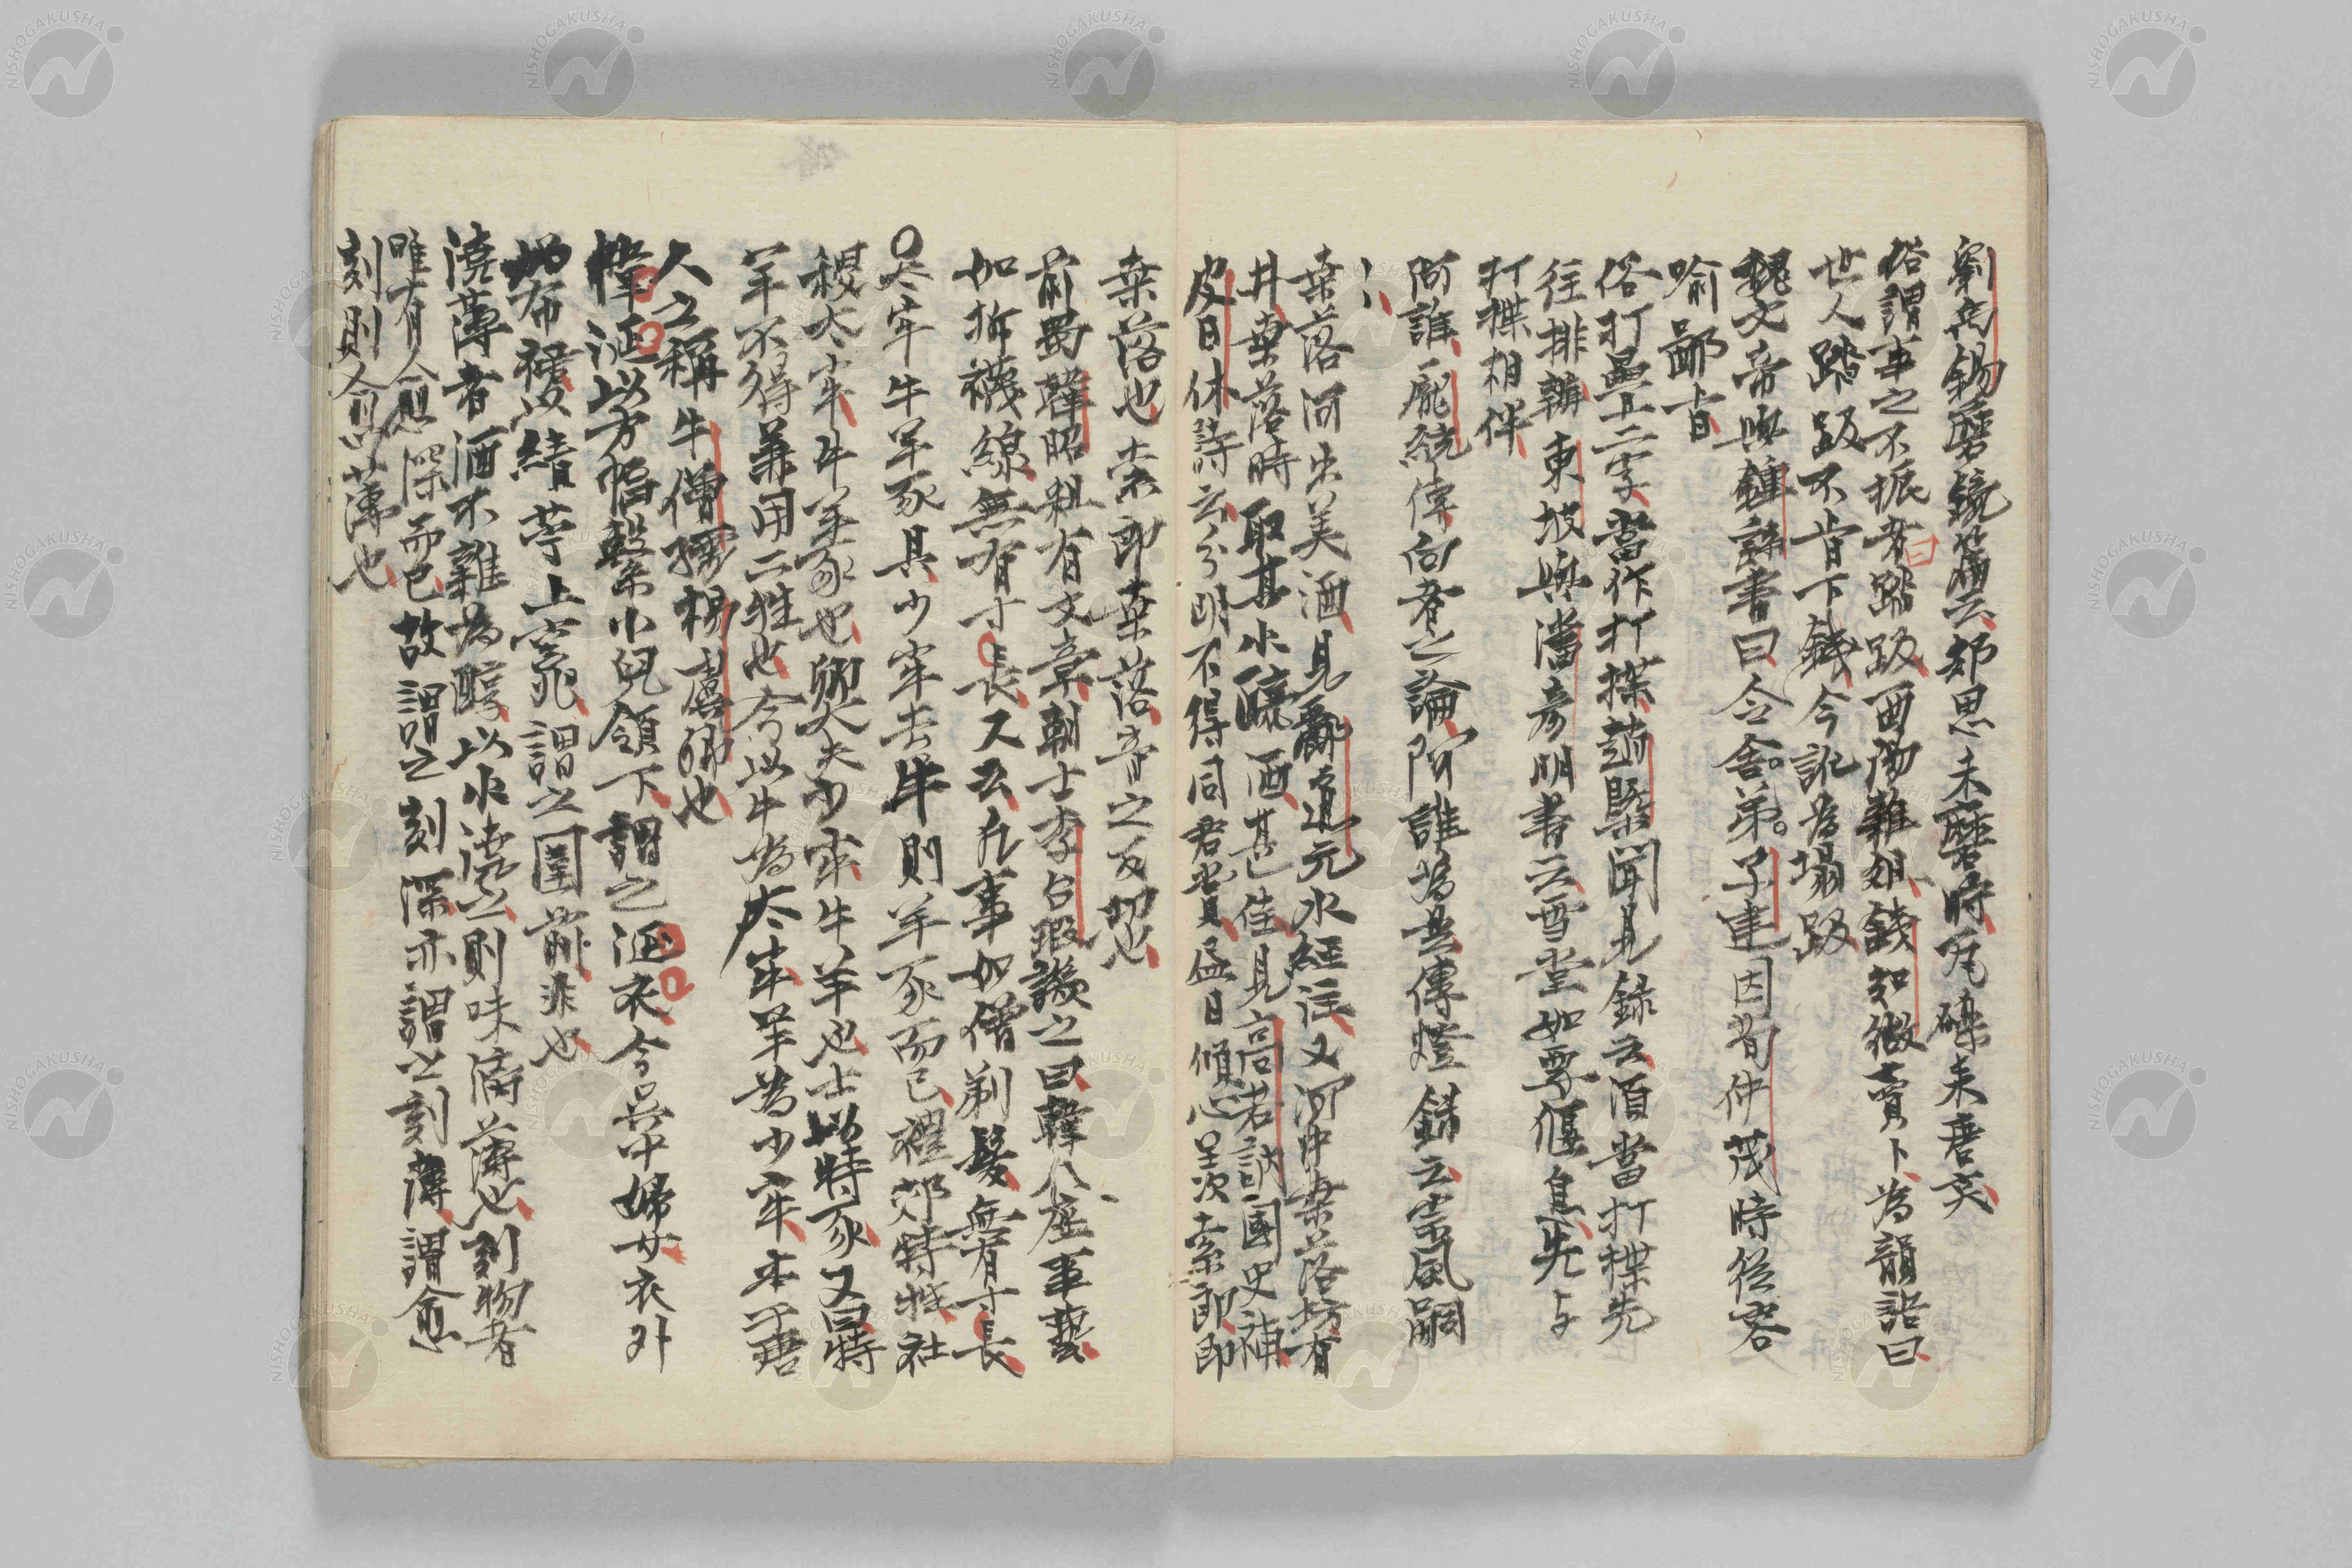 劉禹錫磨鏡篇云却思未磨時瓦礫来唐突
俗謂事之不振者曰踏趿酉陽雑俎錢知微賣卜為韻語曰
世人踏趿不肯下錢今訛為塌趿
魏文帝與鍾繇書曰令舍弟子建因荀仲茂時從容
喻鄙旨
俗打疊上二字當作打揲趙槩聞見録云須當打揲先
往排辦東坡與潘彦明書云雪堂如要偃息先与
打揲相伴
阿誰龐統傳向者之論阿誰為是傳燈録云宗風嗣

桒落河出美酒見酈道元水経注又河中桒落坊有
井桒落時取其水釀酒甚佳見高若訥國史補
皮日休詩云分明不得同君賞盡日傾心羨索郎郎
桒落也索郎桒落音之反切也
前蜀韓昭粗有文章朝士李台瑕譏之曰韓八座事藝
如拆襪線無有寸長又云凡事如僧剃髮無有寸長
太牢牛羊豕具少牢去牛則羊豕而已禮郊特牲社
稷太牢牛羊豕也卿大夫少牢牛羊也士以特豕又曰特
羊不得兼用二牲也今以牛為太牢羊為少牢本于唐
人之稱牛僧孺楊虞卿也
幃涎以方幅繫小兒領下謂之涎衣今吳中婦女衣外
以布裙績苧上竈謂之圍前非也
澆薄者酒不雜為醇以水澆之則味漓薄也刻物者
唯有愈深而已故謂之刻深亦謂之刻薄謂愈
刻則愈薄也